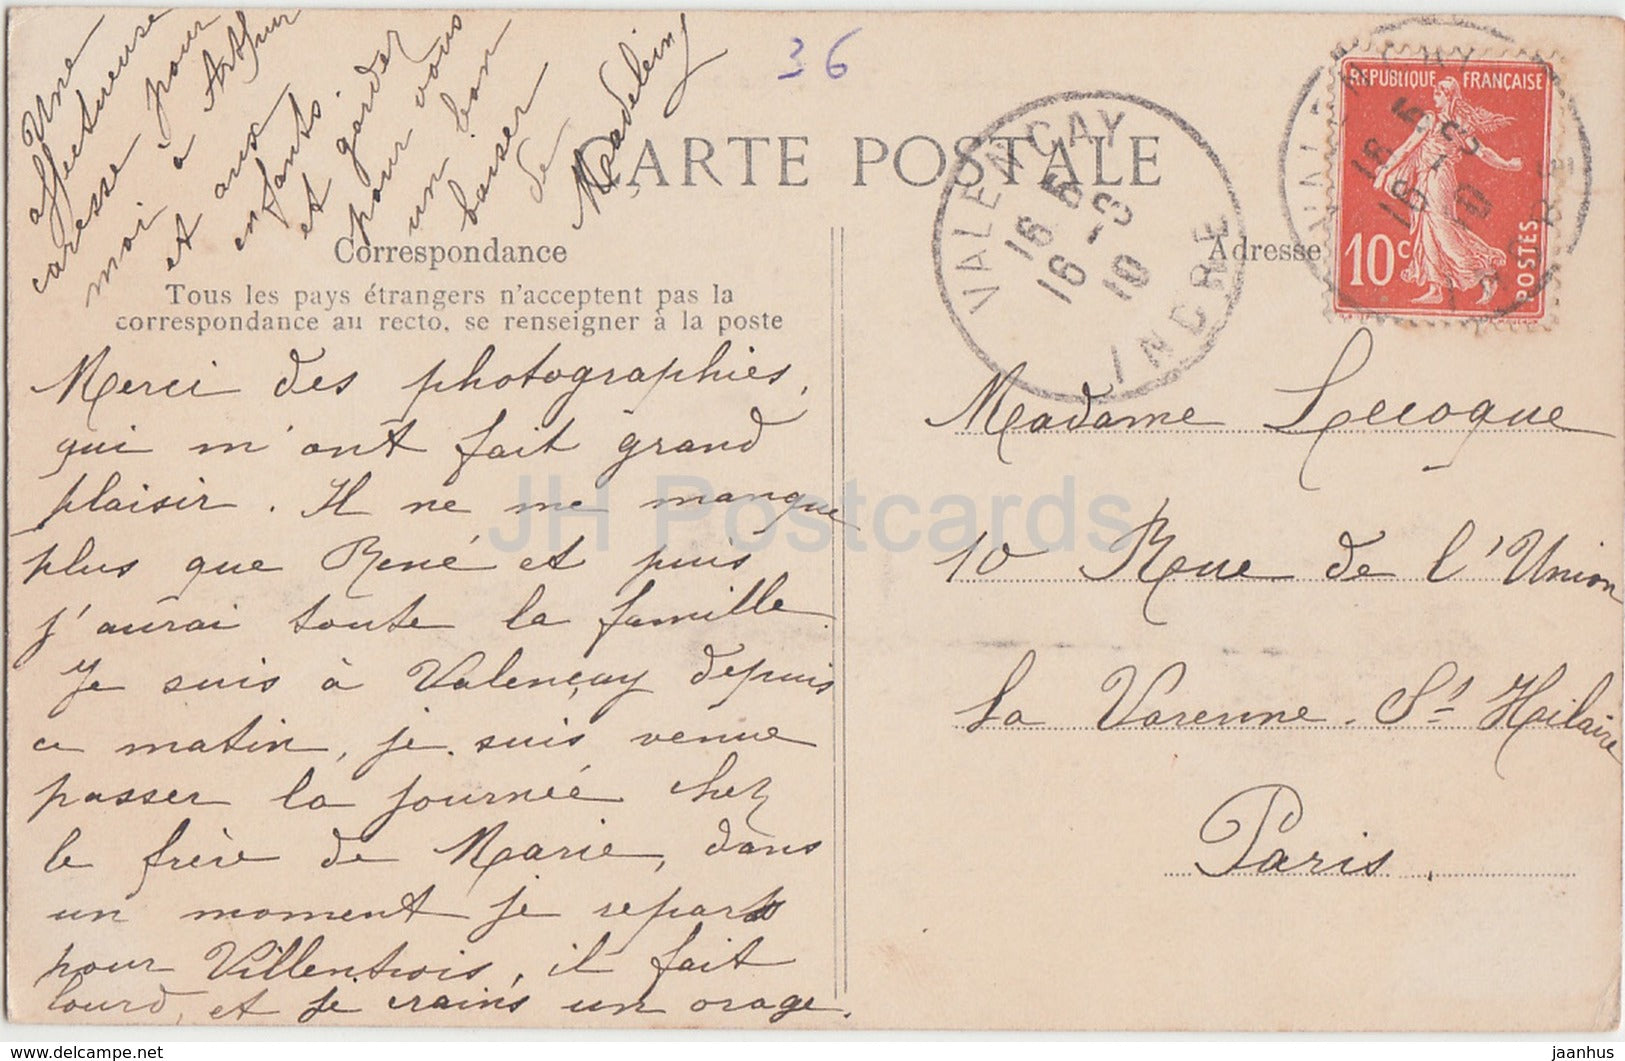 Une
affectueuse
caresse pour
moi à Arthur
et aux
enfants.
et garder
pour vous
un bon
baiser
de
Madeleine
36
CARTE POSTALE
Correspondance
Tous les pays étrangers n'acceptent pas la
correspondance au recto, se renseigner à la poste
Merci des photographies,
qui m'ont fait grand
plaisir. Il ne me manque
plus que René et puis
j'aurai toute la famille.
Je suis à Valençay depuis
ce matin, je suis venue
passer la journée chez
le frère de Marie, dans
un moment je repars
pour Villentrois, il fait
lourd, et je crains un orage.
VALENCAY
16 5
16 -8
10
INDRE
Adresse
REPUBLIQUE FRANÇAISE
10c
POSTES
16 5
16 -8
10
Madame Lecoque
10 Rue de l'Union
La Varenne. St Hilaire
Paris.
JH Postcards
delcampe.net
jaanhus